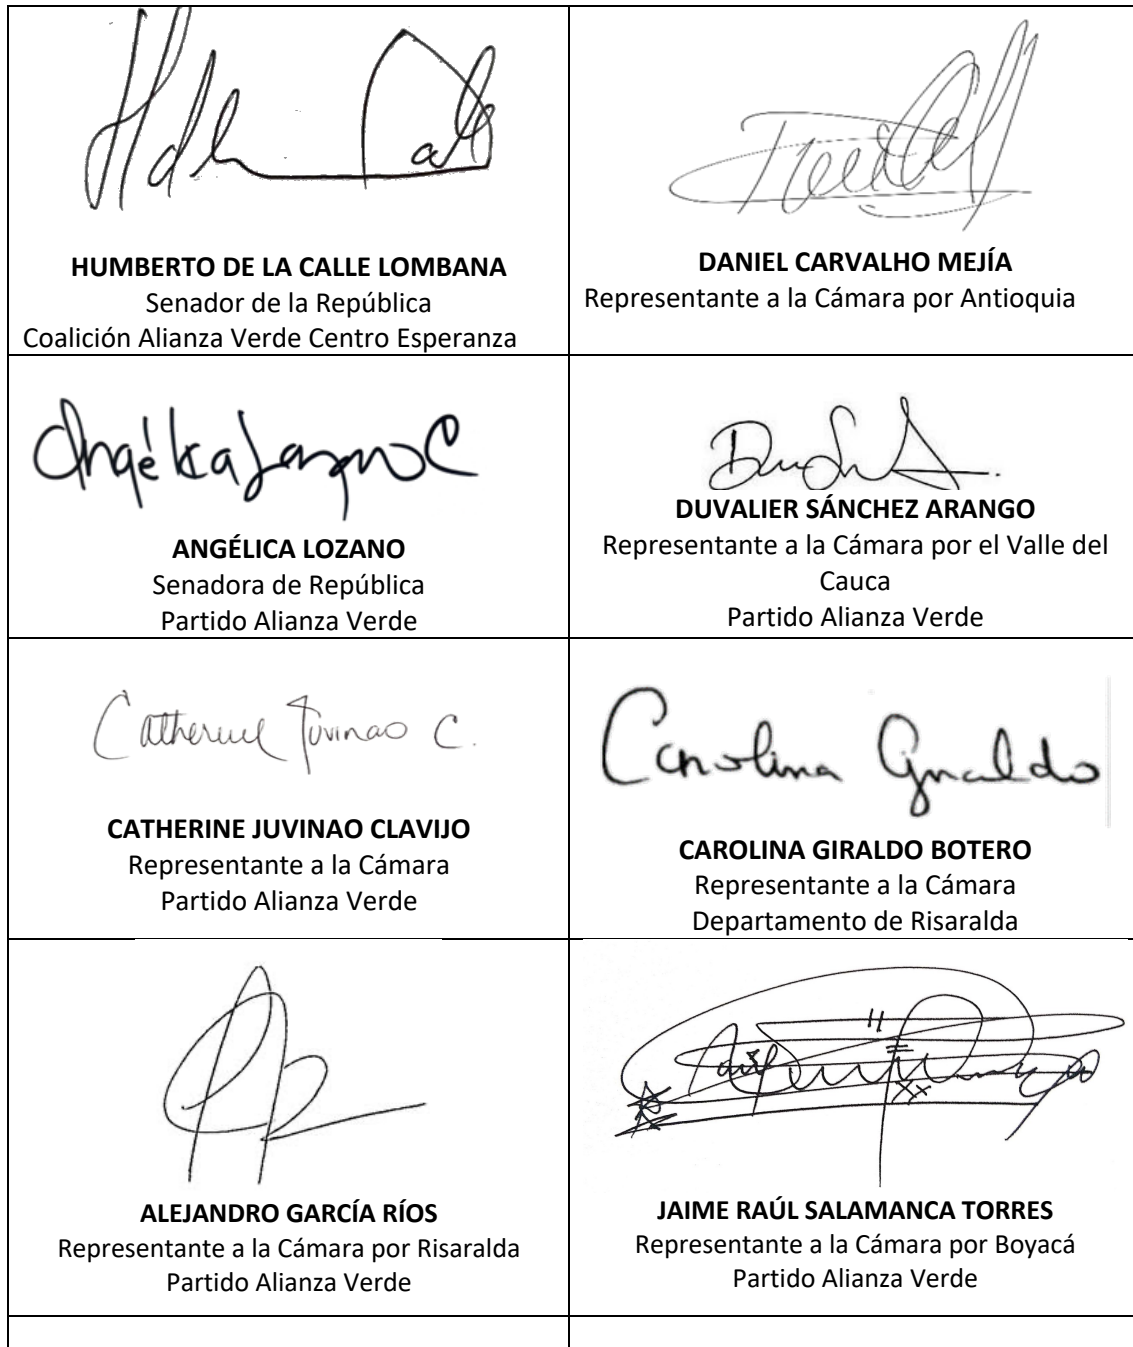 HUMBERTO DE LA CALLE LOMBANA
Senador de la República
Coalición Alianza Verde Centro Esperanza
DANIEL CARVALHO MEJÍA
Representante a la Cámara por Antioquia
Angélica Lozano C
ANGÉLICA LOZANO
Senadora de República
Partido Alianza Verde
DUVALIER SÁNCHEZ ARANGO
Representante a la Cámara por el Valle del
Cauca
Partido Alianza Verde
Catherine Juvinao C.
CATHERINE JUVINAO CLAVIJO
Representante a la Cámara
Partido Alianza Verde
Carolina Giraldo
CAROLINA GIRALDO BOTERO
Representante a la Cámara
Departamento de Risaralda
ALEJANDRO GARCÍA RÍOS
Representante a la Cámara por Risaralda
Partido Alianza Verde
JAIME RAÚL SALAMANCA TORRES
Representante a la Cámara por Boyacá
Partido Alianza Verde